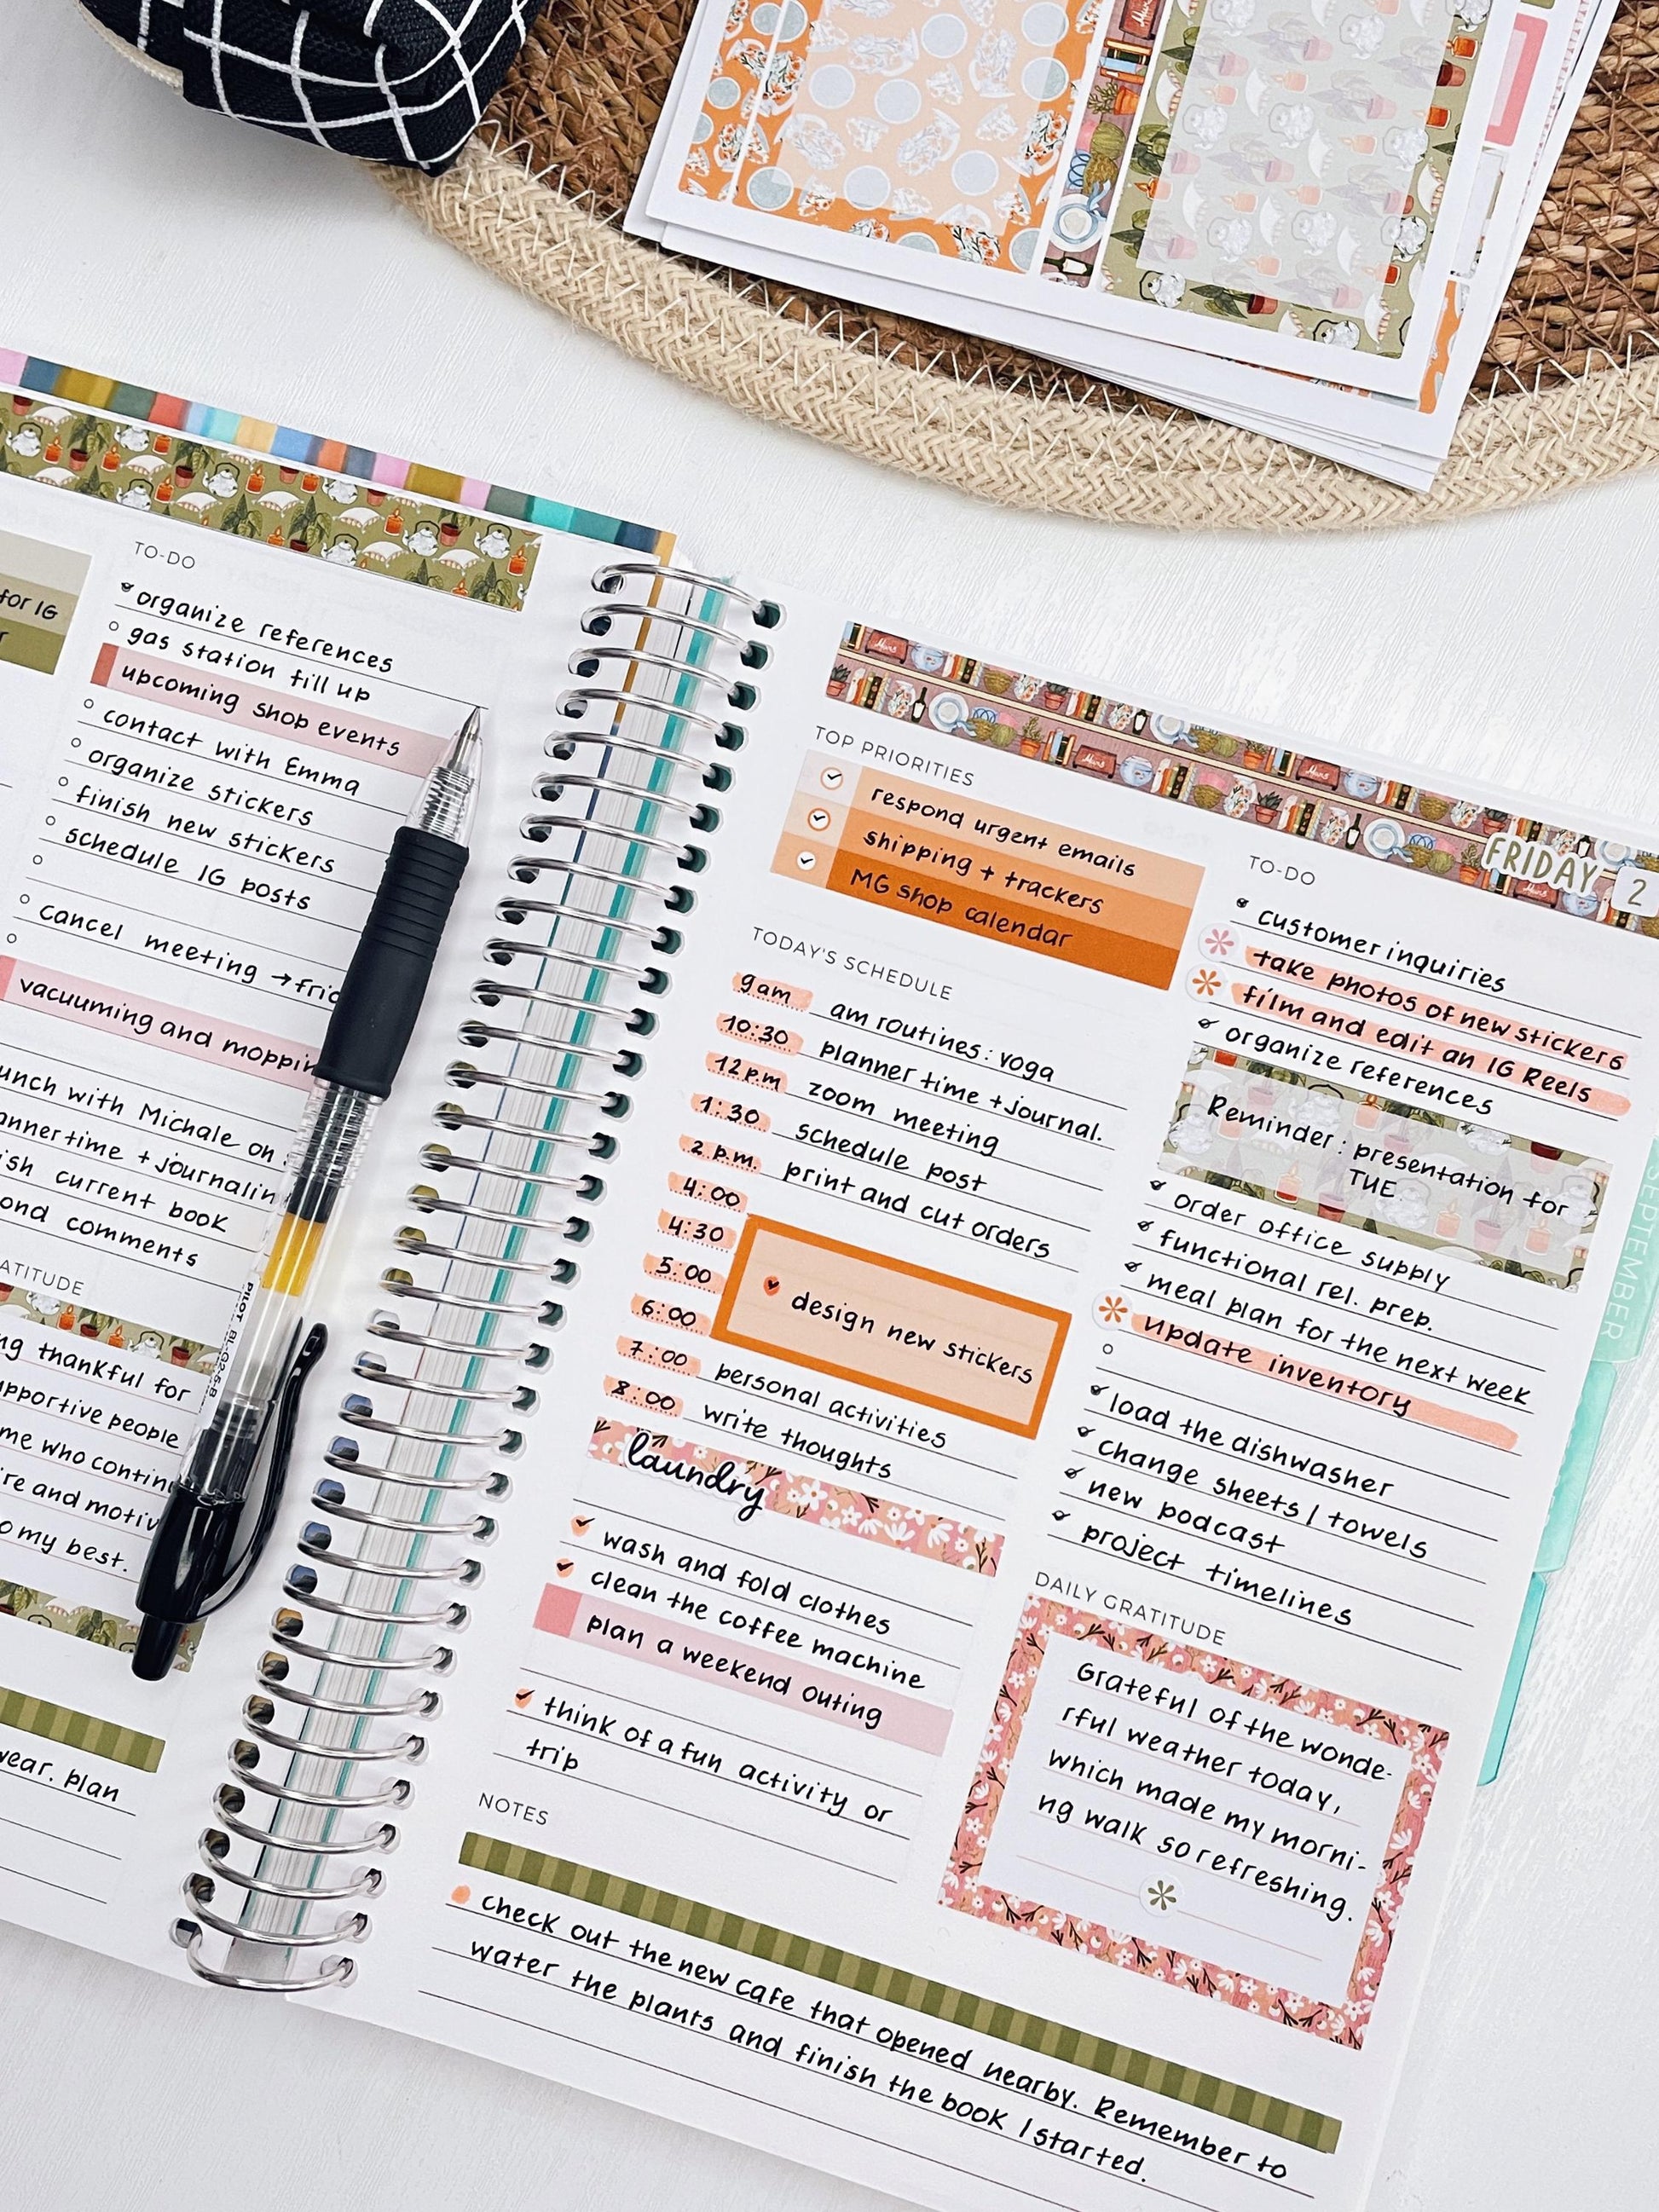 for IG
TO-DO
organize references
gas station fill up
upcoming shop events
contact with Emma
organize stickers
finish new stickers
schedule IG posts
cancel meeting → fri
vacuuming and moppin
unch with Michale on
anner time + journalin
ish current book
ond comments
ATITUDE
ng thankful for
upportive people
me who contin
re and motiv
o my best.
wear. plan
PILOT BL-G2-5-B
FRIDAY 2
TOP PRIORITIES
respond urgent emails
shipping + trackers
MG shop calendar
TODAY'S SCHEDULE
9am am routines: yoga
10:30 planner time + journal.
12p.m zoom meeting
1:30 schedule post
2 p.m. print and cut orders
4:00
4:30
5:00 design new stickers
6:00
7:00 personal activities
8:00 write thoughts
laundry
wash and fold clothes
clean the coffee machine
plan a weekend outing
think of a fun activity or
trip
TO-DO
customer inquiries
take photos of new stickers
film and edit an IG Reels
organize references
Reminder: presentation for
TUE
order office supply
functional rel. prep.
meal plan for the next week
update inventory
load the dishwasher
change sheets / towels
new podcast
project timelines
DAILY GRATITUDE
Grateful of the wonde-
rful weather today,
which made my morni-
ng walk so refreshing.
NOTES
check out the new cafe that opened nearby. Remember to
water the plants and finish the book I started.
SEPTEMBER